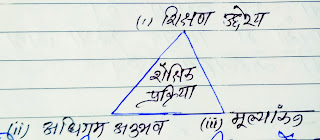 (i) शिक्षण उद्देश्य
शैक्षिक
प्रक्रिया
(ii) अधिगम अनुभव (iii) मूल्यांकन